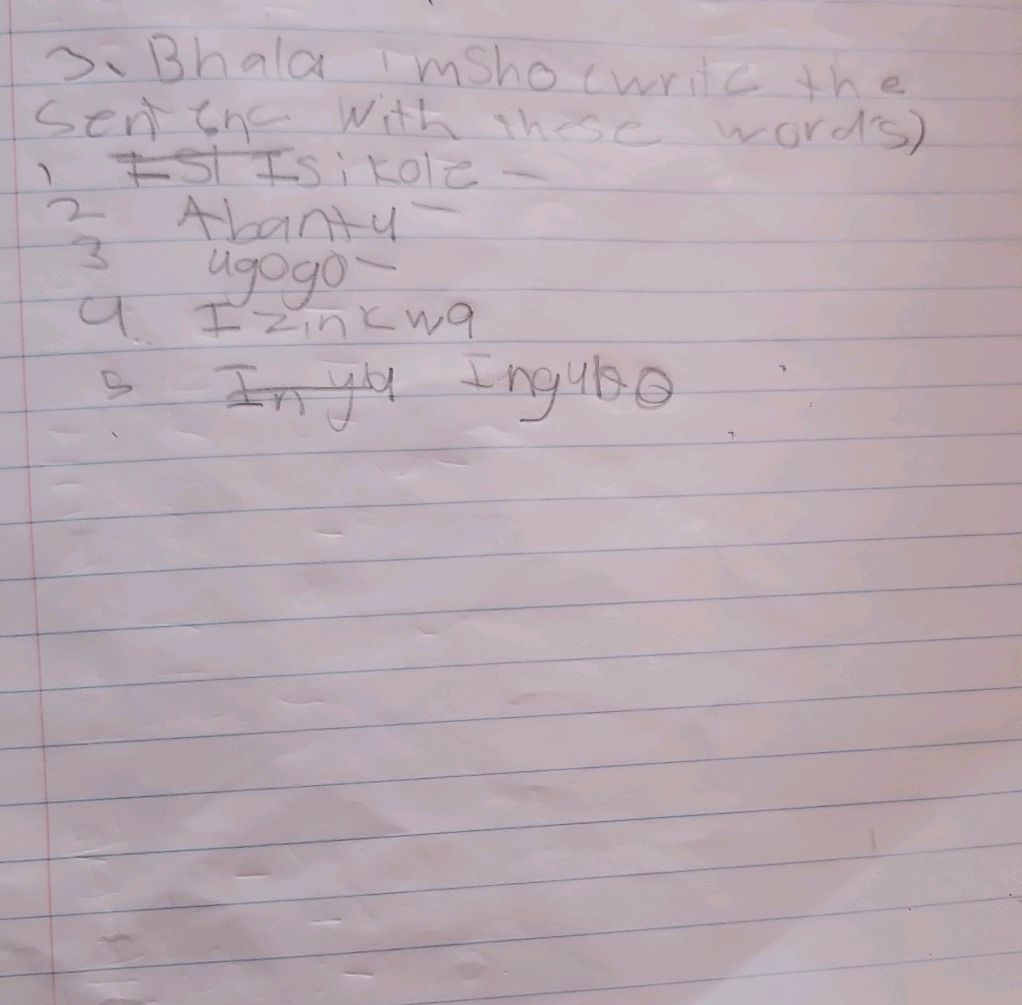 3. Bhala imsho (write the
sentenc with these words)
1 Isikole -
2 Abantu -
3 ugogo -
4. Izinkwa
5 Ingubo